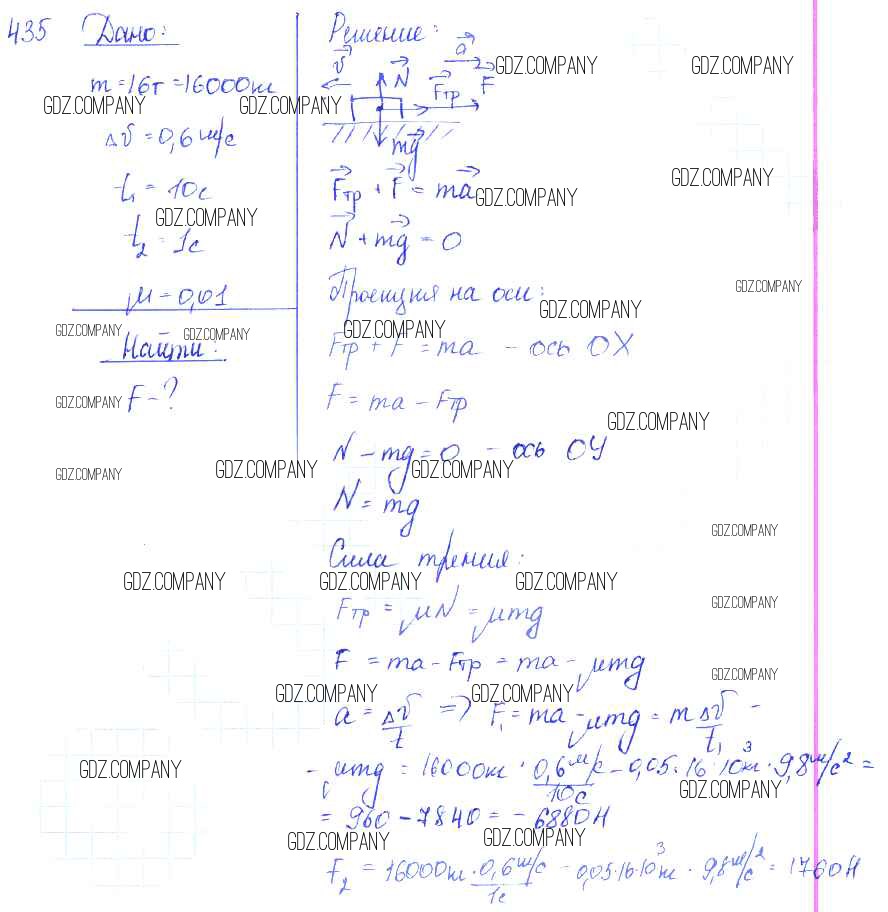 435 Дано:
m = 16т = 16000кг
Δv = 0,6 м/с
t₁ = 10с
t₂ = 1с
μ = 0,01
Найти:
F - ?
Решение:
v N a Fтр F
mg
Fтр + F = ma
N + mg = 0
Проекция на оси:
Fтр + F = ma - ось OX
F = ma - Fтр
N - mg = 0 - ось OY
N = mg
Сила трения:
Fтр = μN = μmg
F = ma - Fтр = ma - μmg
a = Δv/t => F₁ = ma - μmg = m Δv/t₁ -
- μmg = 16000кг · 0,6 м/с / 10с - 0,05 · 16 · 10³ кг · 9,8 м/с² =
= 960 - 7840 = - 6880Н
F₂ = 16000кг · 0,6 м/с / 1с - 0,05 · 16 · 10³ кг · 9,8 м/с² = 1760Н
GDZ.COMPANY GDZ.COMPANY
GDZ.COMPANY GDZ.COMPANY
GDZ.COMPANY GDZ.COMPANY
GDZ.COMPANY
GDZ.COMPANY GDZ.COMPANY
GDZ.COMPANY GDZ.COMPANY GDZ.COMPANY
GDZ.COMPANY GDZ.COMPANY
GDZ.COMPANY GDZ.COMPANY GDZ.COMPANY
GDZ.COMPANY
GDZ.COMPANY GDZ.COMPANY GDZ.COMPANY
GDZ.COMPANY
GDZ.COMPANY GDZ.COMPANY GDZ.COMPANY
GDZ.COMPANY GDZ.COMPANY
GDZ.COMPANY GDZ.COMPANY